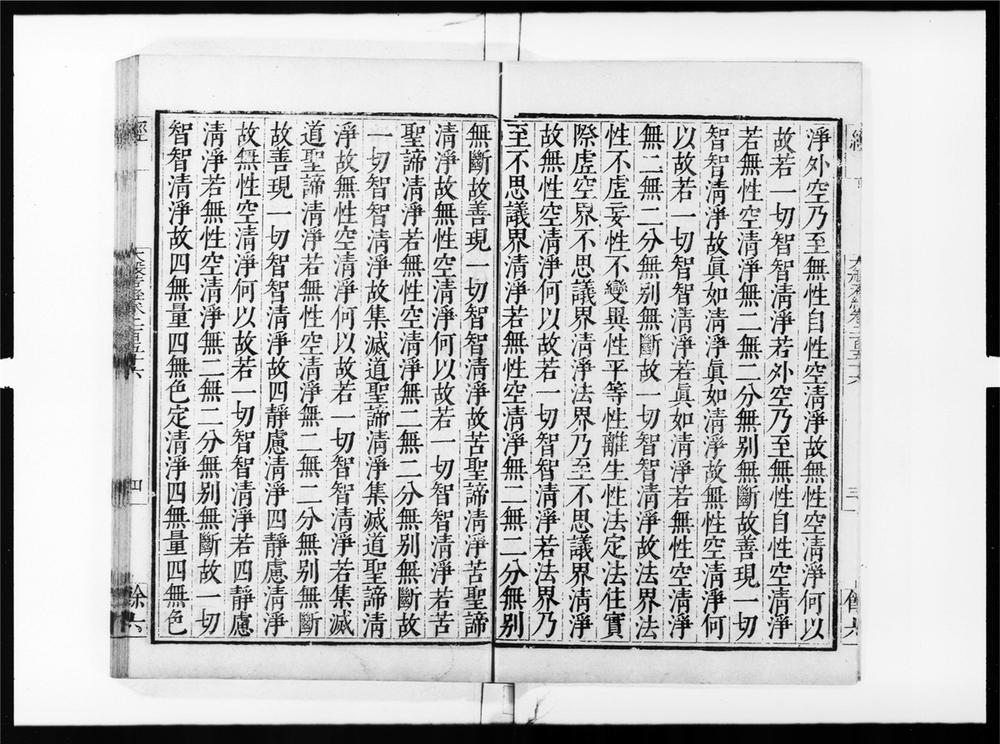 淨外空乃至無性自性空清淨故無性空清淨何以
故若一切智智清淨若外空乃至無性自性空清淨
若無性空清淨無二無二分無別無斷故善現一切
智智清淨故眞如清淨眞如清淨故無性空清淨何
以故若一切智智清淨若眞如清淨若無性空清淨
無二無二分無別無斷故一切智智清淨故法界法
性不虛妄性不變異性平等性離生性法定法住實
際虛空界不思議界清淨法界乃至不思議界清淨
故無性空清淨何以故若一切智智清淨若法界乃
至不思議界清淨若無性空清淨無二無二分無別
無斷故善現一切智智清淨故苦聖諦清淨苦聖諦
清淨故無性空清淨何以故若一切智智清淨若苦
聖諦清淨若無性空清淨無二無二分無別無斷故
一切智智清淨故集滅道聖諦清淨集滅道聖諦清
淨故無性空清淨何以故若一切智智清淨若集滅
道聖諦清淨若無性空清淨無二無二分無別無斷
故善現一切智智清淨故四靜慮清淨四靜慮清淨
故無性空清淨何以故若一切智智清淨若四靜慮
清淨若無性空清淨無二無二分無別無斷故一切
智智清淨故四無量四無色定清淨四無量四無色
經
四
餘六